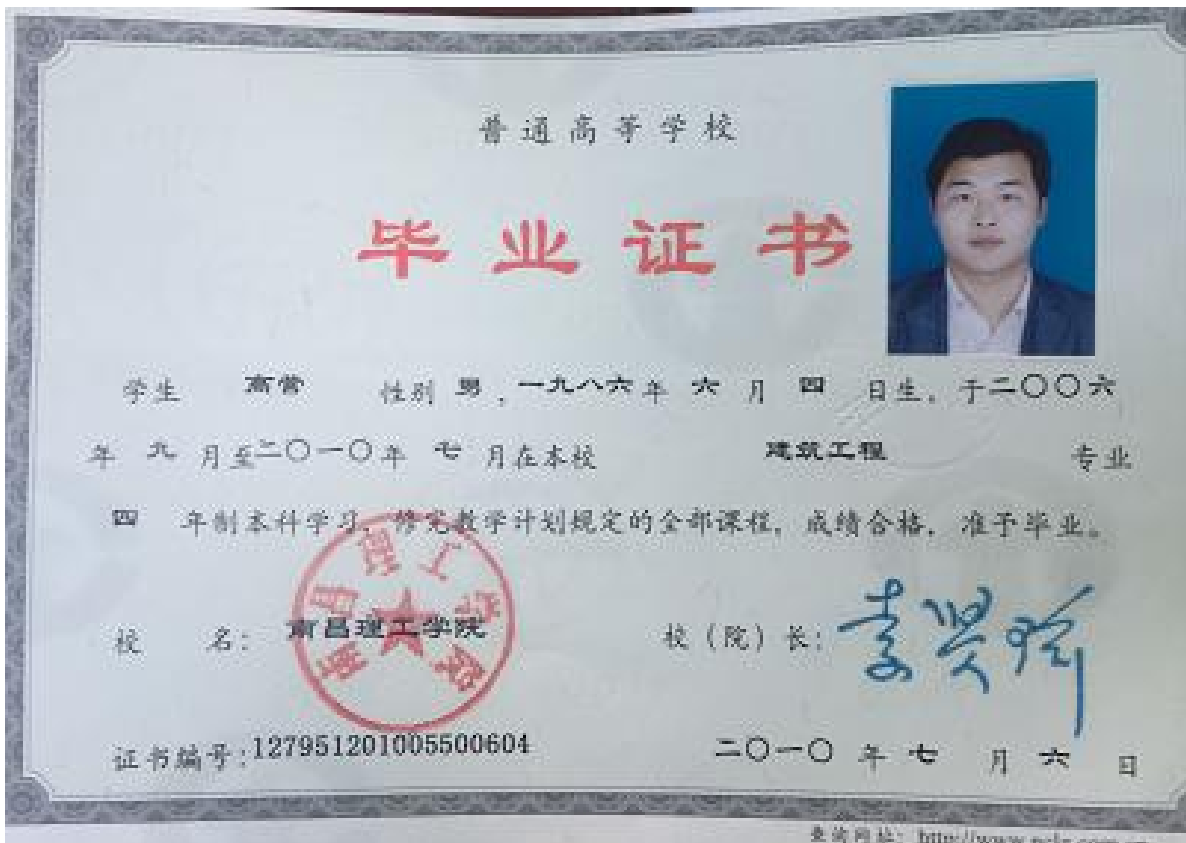 普通高等学校
毕业证书
学生 高营 性别 男，一九八六年 六 月 四 日生，于二〇〇六
年 九 月至二〇一〇年 七 月在本校 建筑工程 专业
四 年制本科学习，修完教学计划规定的全部课程，成绩合格，准予毕业。
南昌理工学院
校 名：南昌理工学院 校（院）长：
证书编号：127951201005500604 二〇一〇 年 七 月 六 日
查询网址：